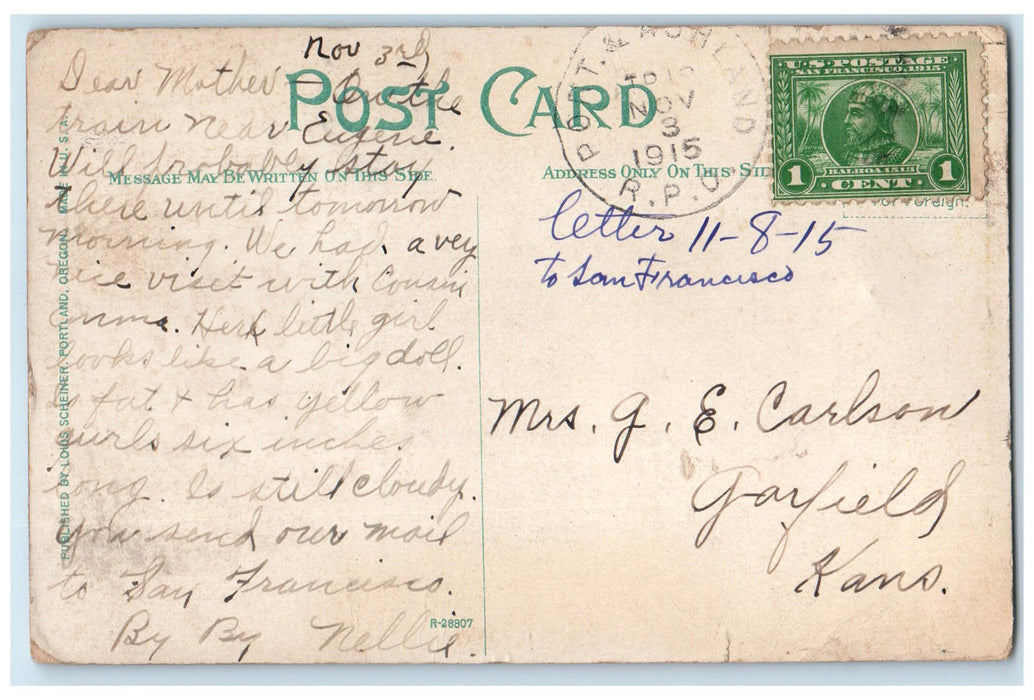 Nov 3rd
Dear Mother - On the
train near Eugene.
Will probably stay
there until tomorrow
morning. We had a very
nice visit with Cousin
Emma. Her little girl
looks like a big doll.
Is fat & has yellow
curls six inches
long. Is still cloudy.
You send our mail
to San Francisco.
By By Nellie.
POST CARD
MESSAGE MAY BE WRITTEN ON THIS SIDE.
ADDRESS ONLY ON THIS SIDE
PUBLISHED BY LOUIS SCHEINER, PORTLAND, OREGON. MADE IN U.S.A.
R-28807
PORT. & ASHLAND
NOV
3
1915
R.P.O.
U.S. POSTAGE
SAN FRANCISCO, 1915
BALBOA 1513
1 CENT 1
For Foreign
letter 11-8-15
to San Francisco
Mrs. G. E. Carlson
Garfield
Kans.